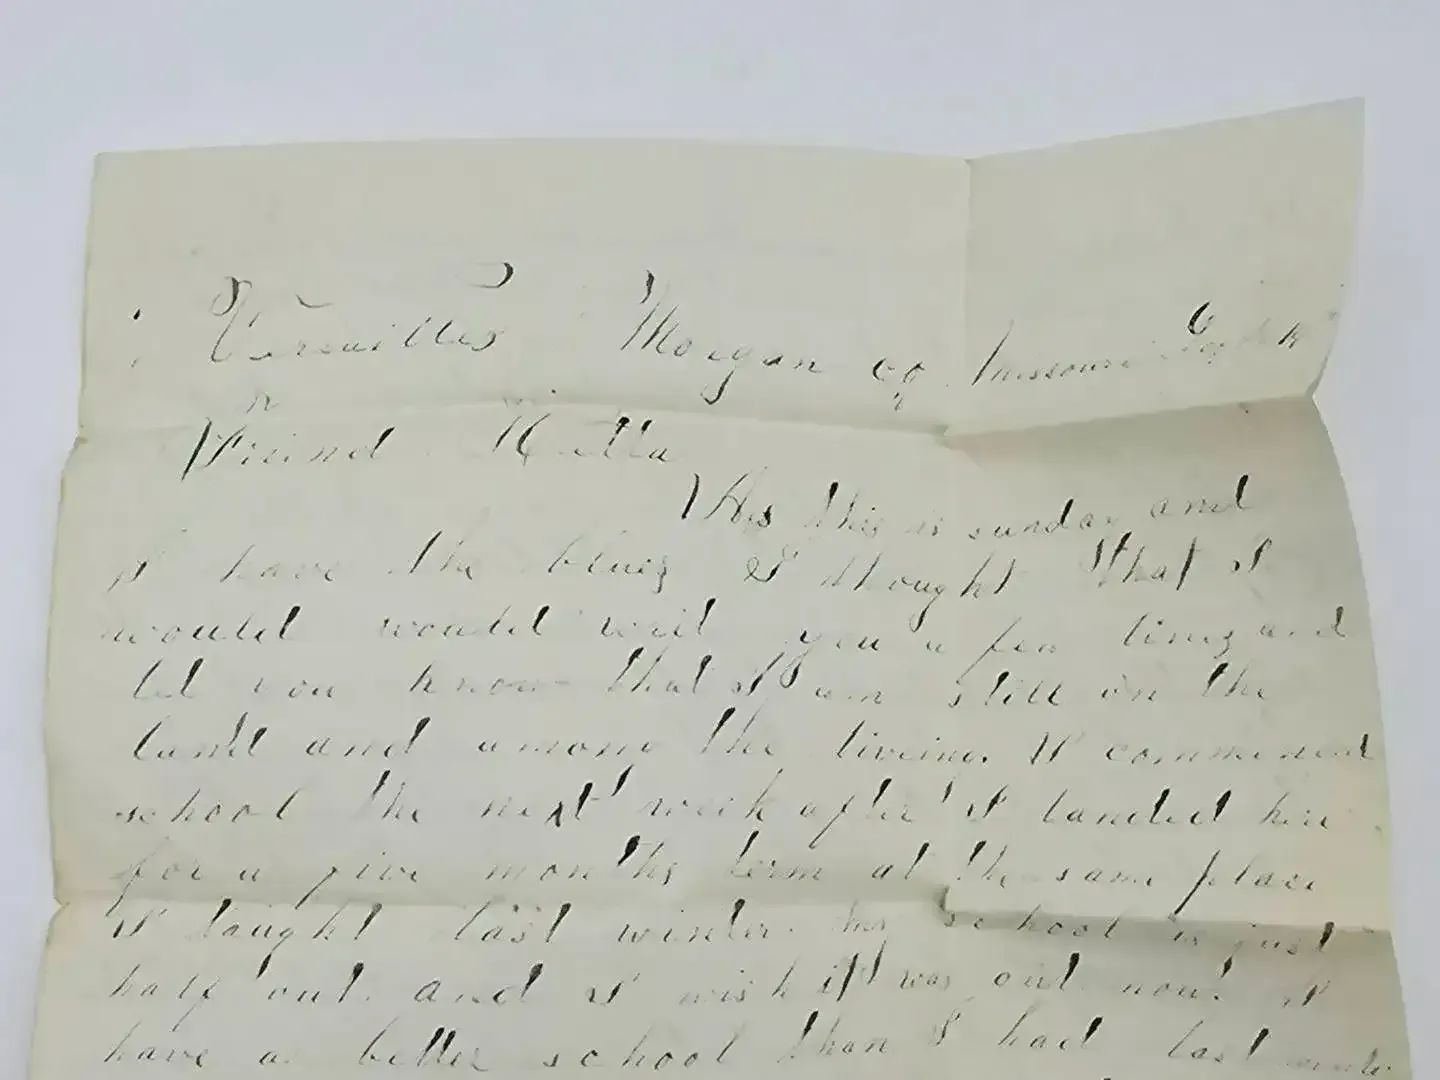 Versailles Morgan co Missouri
Friend Hetta
As this is sunday and
I have the blues I thought that I
would would writ you a few lines and
let you know that I am still on the
land and among the liveing. I commenced
school the next week after I landed here
for a five months term at the same place
I taught last winter. my school is just
half out. and I wish it was out now. I
have a better school than I had last